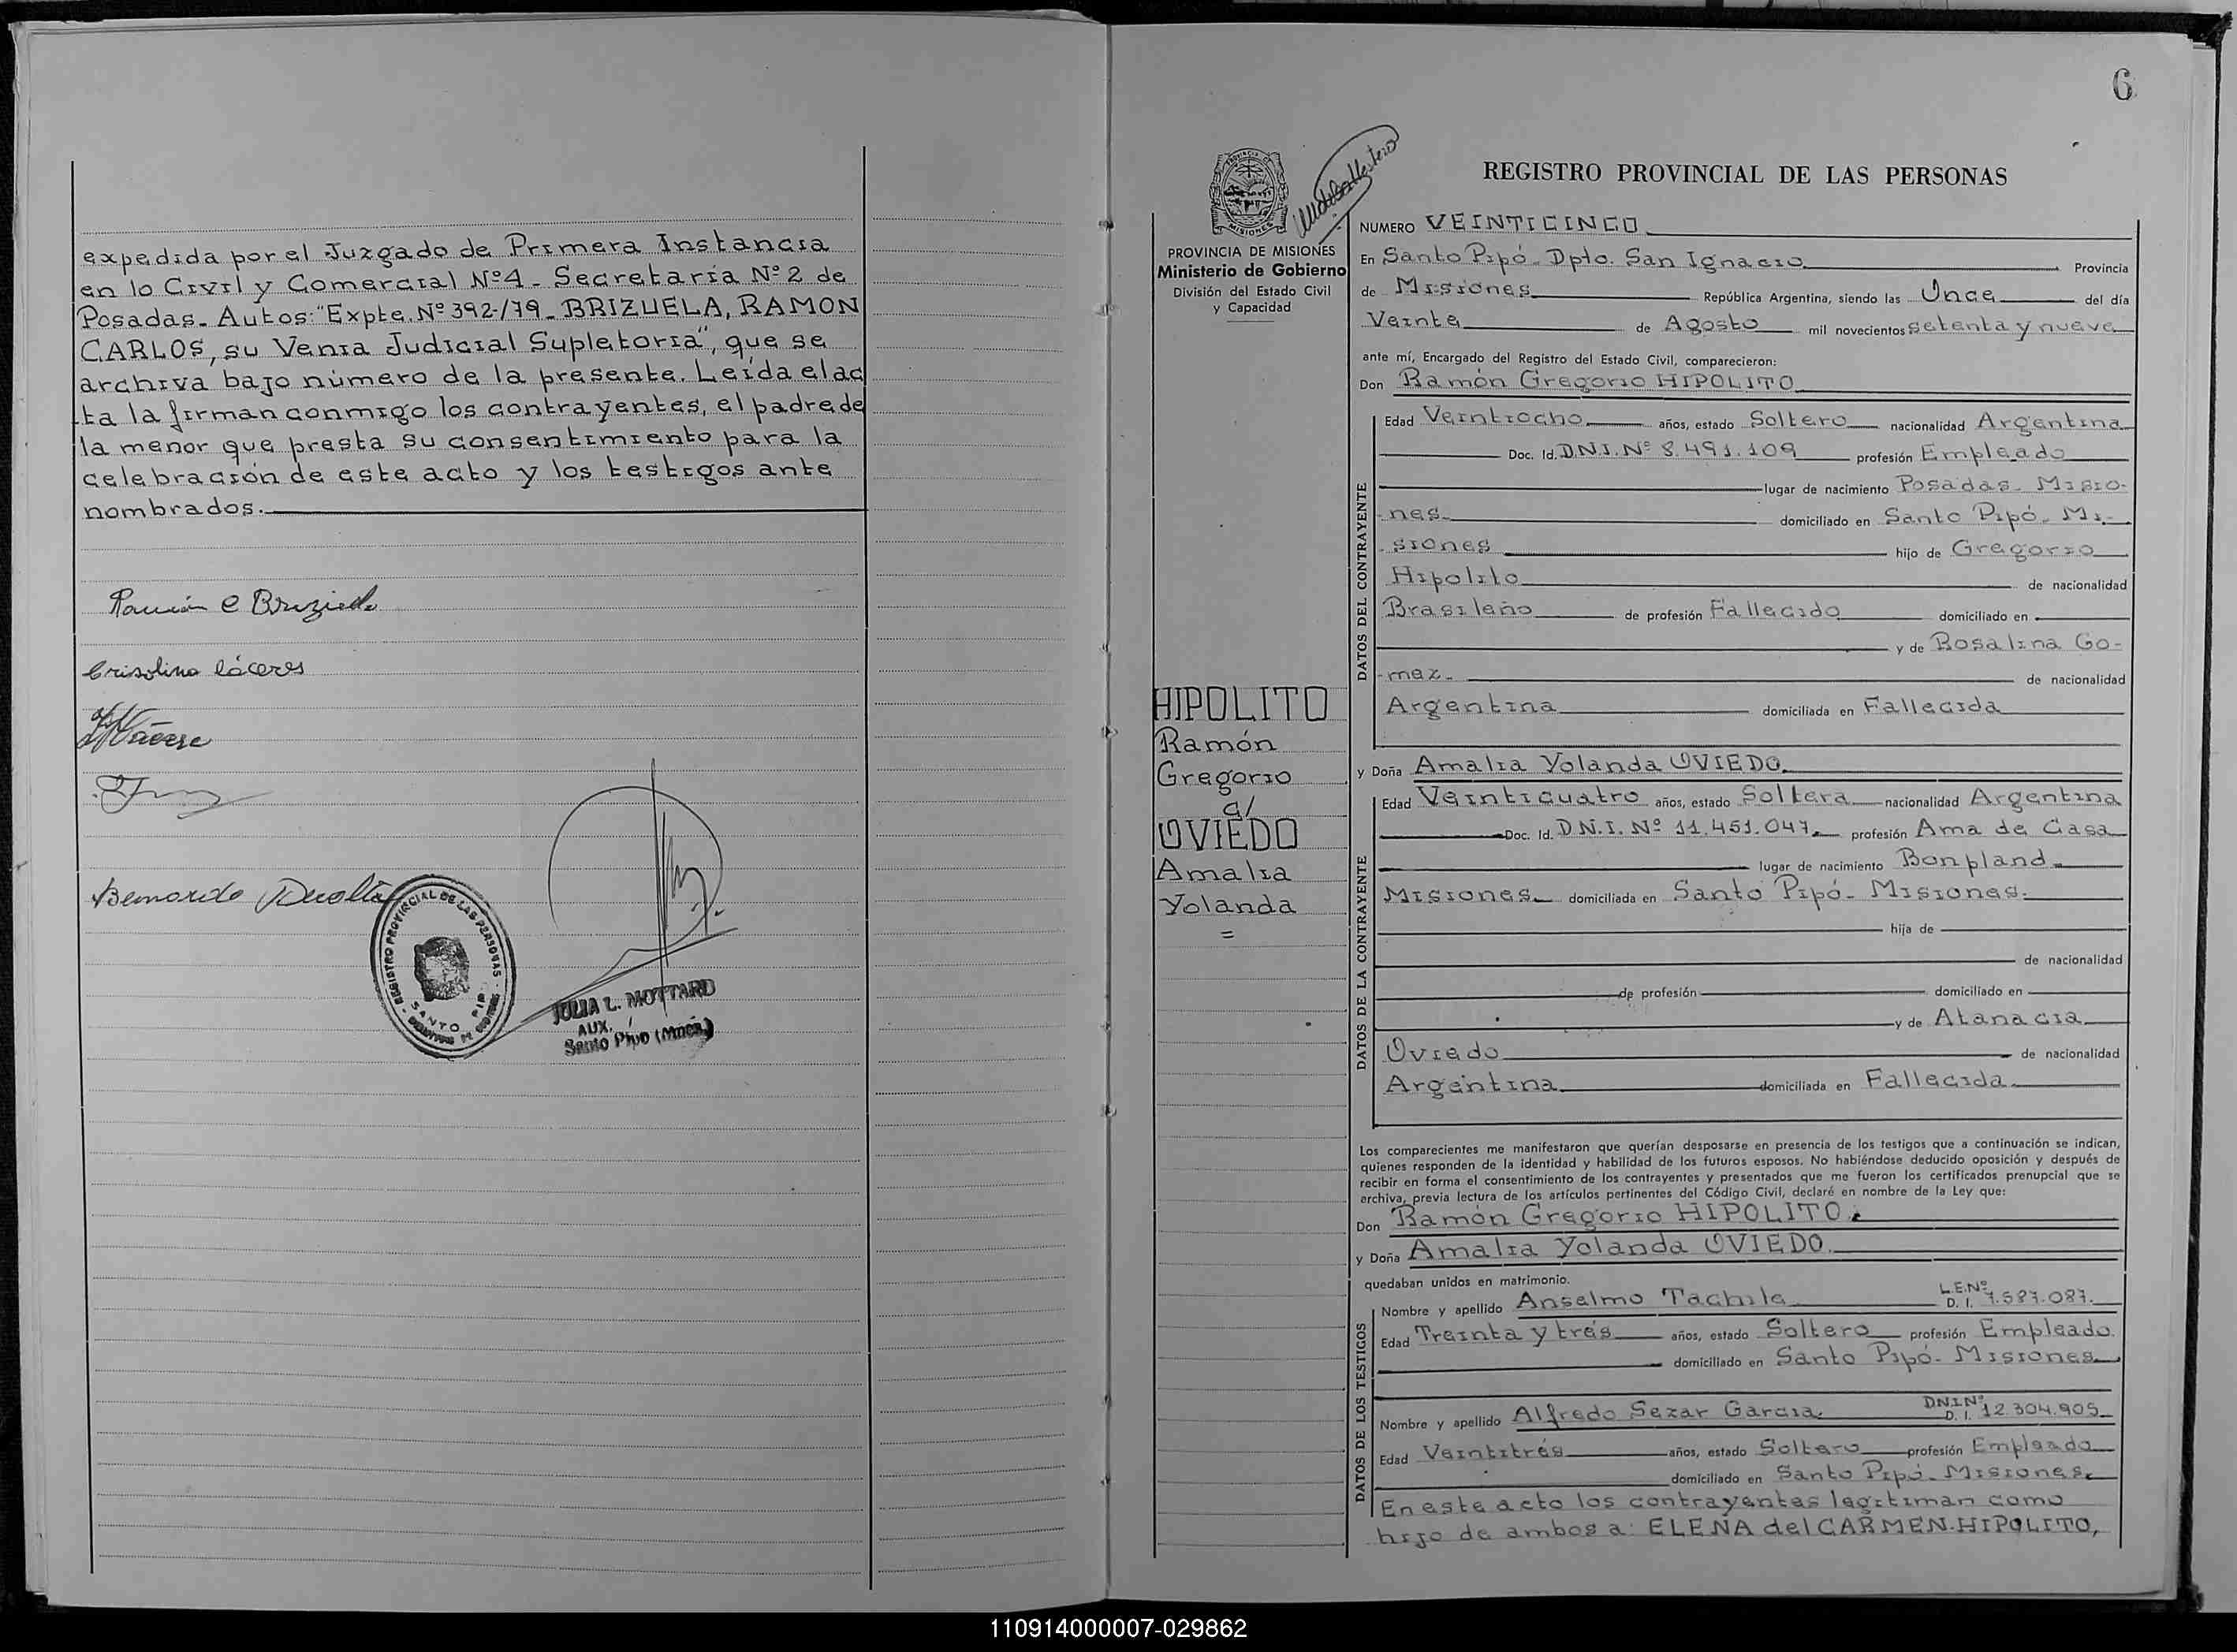 expedida por el Juzgado de Primera Instancia
en lo Civil y Comercial Nº4 - Secretaría Nº 2 de
Posadas. Autos: "Expte. Nº 392/79 - BRIZUELA, RAMON
CARLOS, su Venia Judicial Supletoria", que se
archiva bajo número de la presente. Leída el ac
ta la firman conmigo los contrayentes, el padre de
la menor que presta su consentimiento para la
celebración de este acto y los testigos ante
nombrados.
Ramón C Brizuela
Crisolina Cáceres
Bernardo
REGISTRO PROVINCIAL DE LAS PERSONAS
SANTO PIPO
JULIA L. MOTTARD
AUX.
Santo Pipó (Mnes.)
6
PROVINCIA DE MISIONES
Ministerio de Gobierno
División del Estado Civil
y Capacidad
HIPOLITO
Ramón
Gregorio
c/
OVIEDO
Amalia
Yolanda
=
REGISTRO PROVINCIAL DE LAS PERSONAS
NUMERO VEINTICINCO
En Santo Pipó - Dpto. San Ignacio Provincia
de Misiones República Argentina, siendo las Once del día
Veinte de Agosto mil novecientos setenta y nueve
ante mí, Encargado del Registro del Estado Civil, comparecieron:
Don Ramón Gregorio HIPOLITO
DATOS DEL CONTRAYENTE
Edad Veintiocho años, estado Soltero nacionalidad Argentina
Doc. Id. D.N.I. Nº 8.491.109 profesión Empleado
lugar de nacimiento Posadas - Misio-
-nes- domiciliado en Santo Pipó - Mi-
-siones hijo de Gregorio
Hipolito de nacionalidad
Brasileño de profesión Fallecido domiciliado en
y de Rosalina Go-
-mez- de nacionalidad
Argentina domiciliada en Fallecida
y Doña Amalia Yolanda OVIEDO.
DATOS DE LA CONTRAYENTE
Edad Veinticuatro años, estado Soltera nacionalidad Argentina
Doc. Id. D.N.I. Nº 11.451.047 profesión Ama de Casa
lugar de nacimiento Bonpland -
Misiones domiciliada en Santo Pipó - Misiones.
hija de
de nacionalidad
de profesión domiciliado en
y de Atanacia
Oviedo de nacionalidad
Argentina domiciliada en Fallecida
Los comparecientes me manifestaron que querían desposarse en presencia de los testigos que a continuación se indican,
quienes responden de la identidad y habilidad de los futuros esposos. No habiéndose deducido oposición y después de
recibir en forma el consentimiento de los contrayentes y presentados que me fueron los certificados prenupcial que se
archiva, previa lectura de los artículos pertinentes del Código Civil, declaré en nombre de la Ley que:
Don Ramón Gregorio HIPOLITO.
y Doña Amalia Yolanda OVIEDO.
quedaban unidos en matrimonio.
DATOS DE LOS TESTIGOS
Nombre y apellido Anselmo Tachile L.E.Nº D. I. 7.587.087.
Edad Treinta y tres años, estado Soltero profesión Empleado
domiciliado en Santo Pipó - Misiones
Nombre y apellido Alfredo Sezar Garcia. DNI.Nº D. I. 12.304.905
Edad Veintitrés años, estado Soltero profesión Empleado
domiciliado en Santo Pipó - Misiones.
En este acto los contrayentes legitiman como
hijo de ambos a: ELENA del CARMEN HIPOLITO,
110914000007-029862